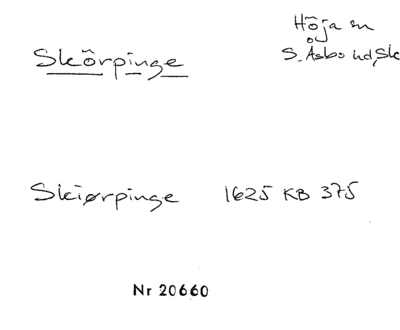 Höja sn
Skörpinge
S. Åsbo hd, Sk
Skiørpinge 1625 KB 375
Nr 20660